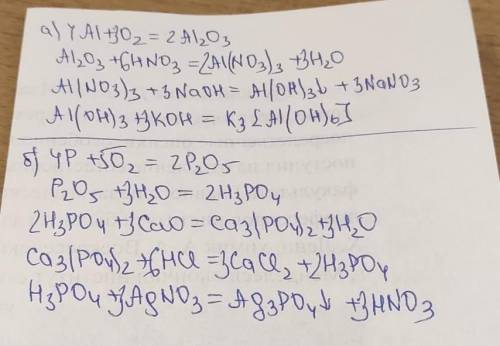 а) 4Al+3O₂ = 2Al₂O₃
Al₂O₃ +6HNO₃ = 2Al(NO₃)₃ +3H₂O
Al(NO₃)₃ + 3NaOH = Al(OH)₃↓ + 3NaNO₃
Al(OH)₃ +3KOH = K₃[Al(OH)₆]
б) 4P + 5O₂ = 2P₂O₅
P₂O₅ +3H₂O = 2H₃PO₄
2H₃PO₄ +3CaO = Ca₃(PO₄)₂ +3H₂O
Ca₃(PO₄)₂ +6HCl = 3CaCl₂ + 2H₃PO₄
H₃PO₄ +3AgNO₃ = Ag₃PO₄↓ +3HNO₃